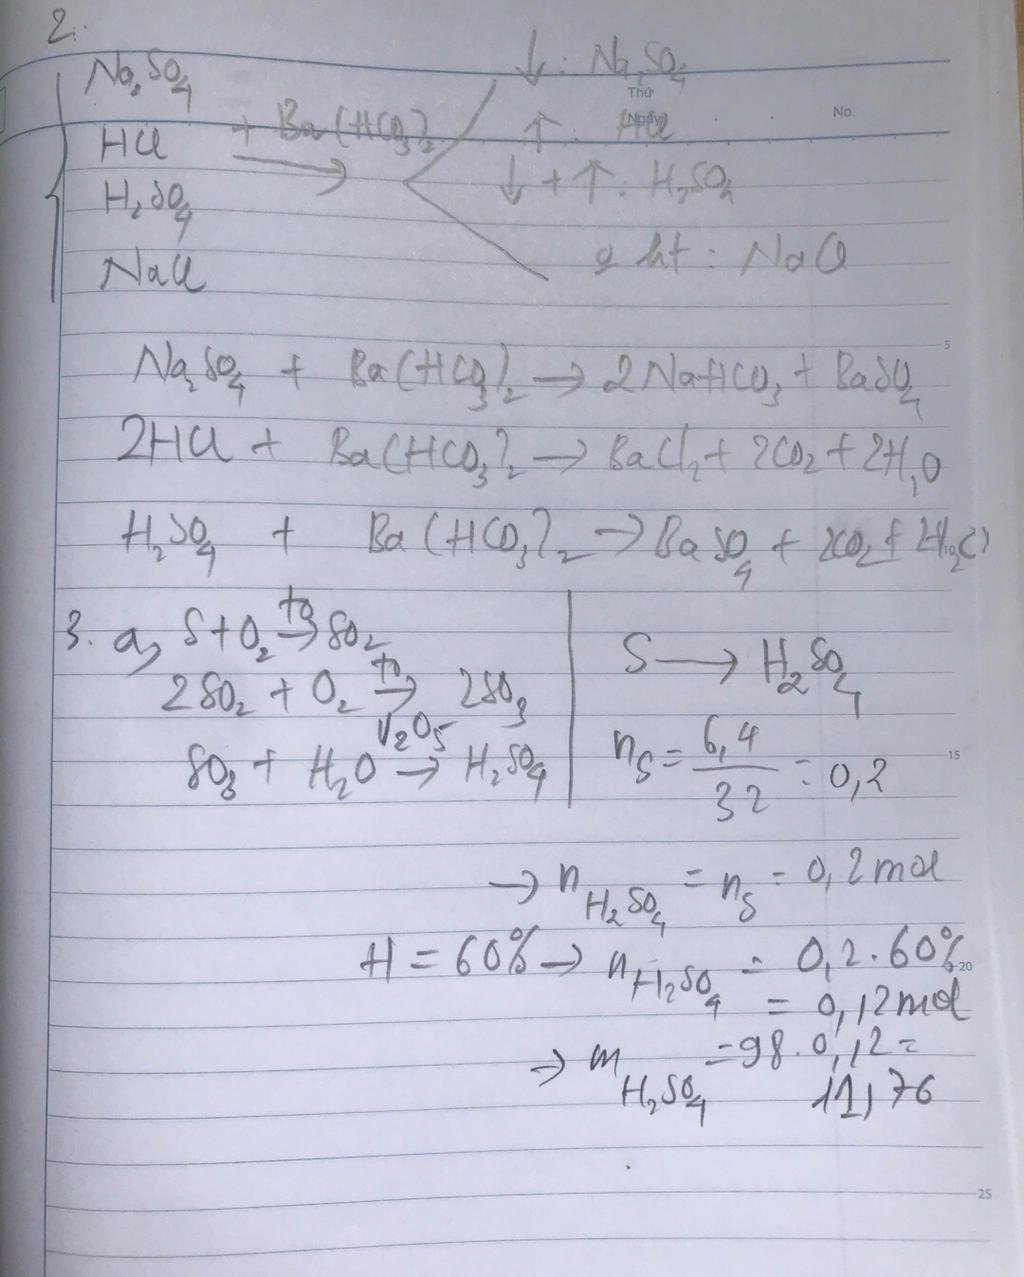 2.
Na₂SO₄
HCl
H₂SO₄
NaCl
+ Ba(HCO₃)₂
→
↓ : Na₂SO₄
Thứ
Ngày
No.
↑ : HCl
↓ + ↑ : H₂SO₄
ht : NaCl
Na₂SO₄ + Ba(HCO₃)₂ → 2NaHCO₃ + BaSO₄
5
2HCl + Ba(HCO₃)₂ → BaCl₂ + 2CO₂ + 2H₂O
H₂SO₄ + Ba(HCO₃)₂ → BaSO₄ + 2CO₂ + 2H₂O
3. a, S + O₂ →(t⁰) SO₂
2SO₂ + O₂ →(t⁰, V₂O₅) 2SO₃
SO₃ + H₂O → H₂SO₄
S → H₂SO₄
n_S = 6,4/32 = 0,2
15
→ n_H₂SO₄ = n_S = 0,2 mol
H = 60% → n_H₂SO₄ = 0,2 . 60%
20
= 0,12 mol
→ m_H₂SO₄ = 98 . 0,12 =
11,76
25